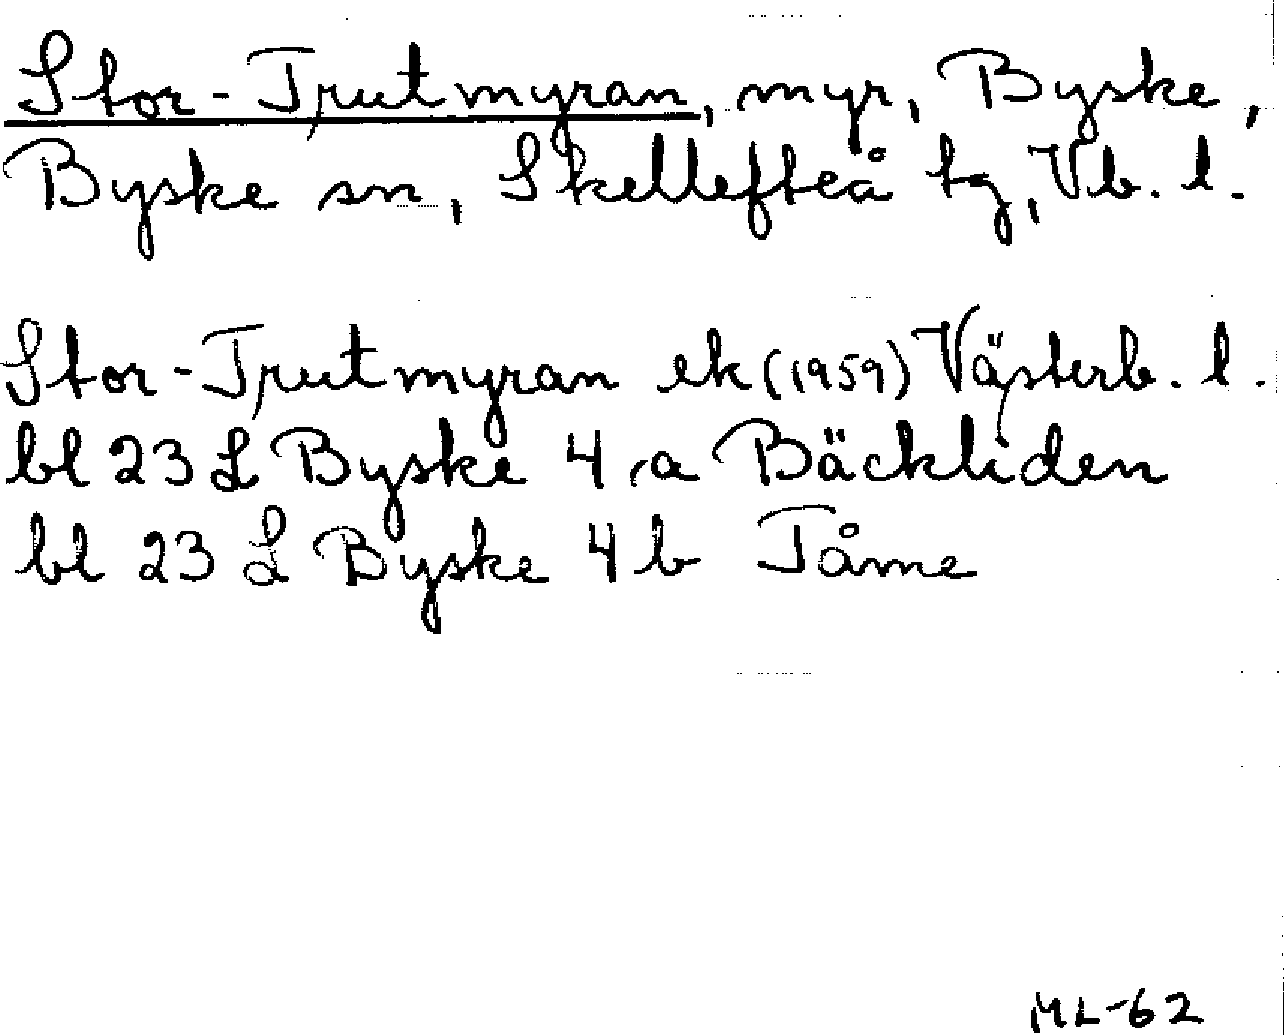 Stor-Trutmyran, myr, Byske,
Byske sn, Skellefteå tg, Vb. l.
Stor-Trutmyran ek (1959) Västerb. l.
bl 23 L Byske 4 a Bäckliden
bl 23 L Byske 4 b Tåme
ML-62